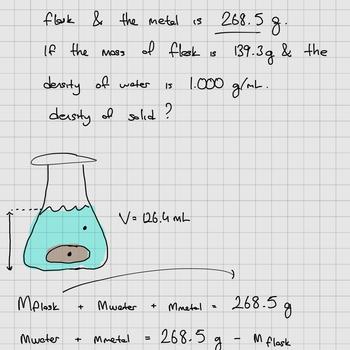 flask & the metal is 268.5 g.
If the mass of flask is 139.3g & the
density of water is 1.000 g/mL.
density of solid?
V = 126.4 mL
Mflask + Mwater + Mmetal = 268.5 g
Mwater + Mmetal = 268.5 g - Mflask